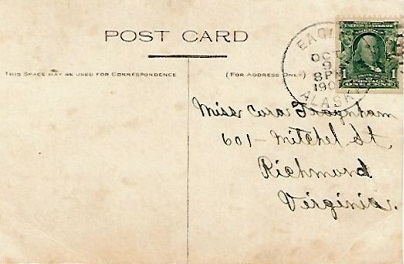 POST CARD
THIS SPACE MAY BE USED FOR CORRESPONDENCE
(FOR ADDRESS ONLY)
EAG
OCT
9
8P
190
ALASK
1 1
ONE CENT
Miss Cora
601 - Mitchel St
Richmond
Virginia.